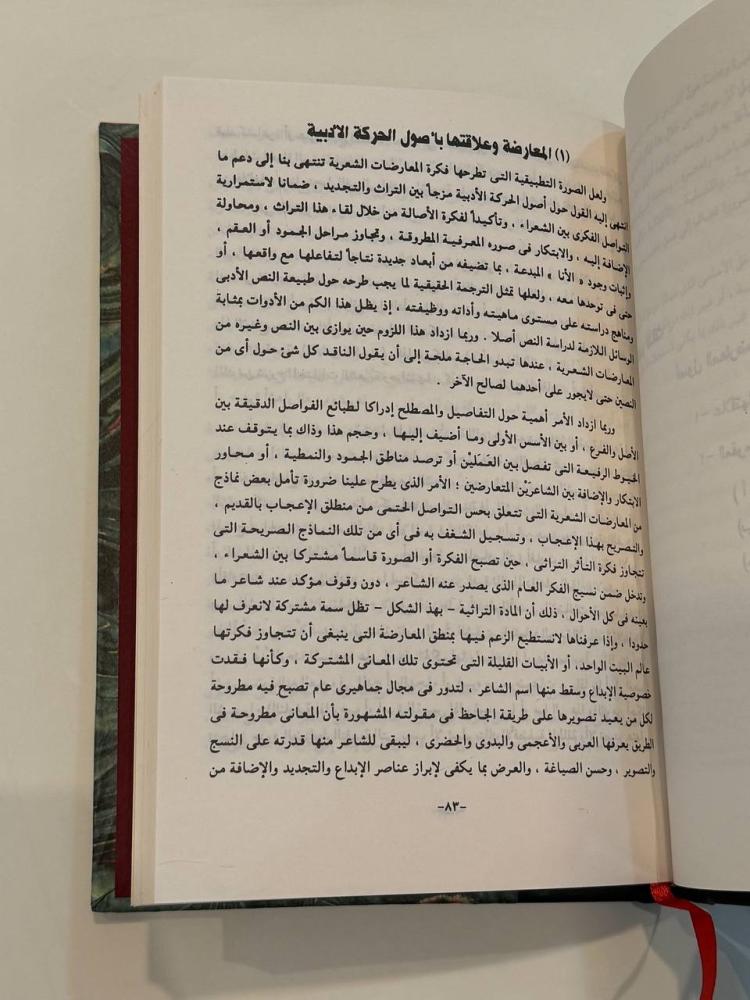 (١) المعارضة وعلاقتها بأصول الحركة الأدبية
ولعل الصورة التطبيقية التى تطرحها فكرة المعارضات الشعرية تنتهى بنا إلى دعم ما
انتهى إليه القول حول أصول الحركة الأدبية مزجاً بين التراث والتجديد ، ضمانا لاستمرارية
التواصل الفكرى بين الشعراء ، وتأكيداً لفكرة الأصالة من خلال لقاء هذا التراث ، ومحاولة
الإضافة إليه ، والابتكار فى صوره المعرفية المطروقة ، وتجاوز مراحل الجمود أو العقم ،
وإثبات وجود « الأنا » المبدعة ، بما تضيفه من أبعاد جديدة نتاجاً لتفاعلها مع واقعها ، أو
حتى فى توحدها معه ، ولعلها تمثل الترجمة الحقيقية لما يجب طرحه حول طبيعة النص الأدبى
ومناهج دراسته على مستوى ماهيته وأداته ووظيفته ، إذ يظل هذا الكم من الأدوات بمثابة
الوسائل اللازمة لدراسة النص أصلا . وربما ازداد هذا اللزوم حين يوازى بين النص وغيره من
المعارضات الشعرية ، عندها تبدو الحاجة ملحة إلى أن يقول الناقد كل شئ حول أى من
النصين حتى لايجور على أحدهما لصالح الآخر .
وربما ازداد الأمر أهمية حول التفاصيل والمصطلح إدراكا لطبائع الفواصل الدقيقة بين
الأصل والفرع ، أو بين الأسس الأولى وما أضيف إليها ، وحجم هذا وذاك بما يتوقف عند
الخيوط الرفيعة التى تفصل بين العَمَليْن أو ترصد مناطق الجمود والنمطية ، أو محاور
الابتكار والإضافة بين الشاعرَيْن المتعارضين ؛ الأمر الذى يطرح علينا ضرورة تأمل بعض نماذج
من المعارضات الشعرية التى تتعلق بحس التواصل الحتمى من منطلق الإعجاب بالقديم ،
والتصريح بهذا الإعجاب ، وتسجيل الشغف به فى أى من تلك النماذج الصريحة التى
تتجاوز فكرة التأثر التراثى ، حين تصبح الفكرة أو الصورة قاسماً مشتركا بين الشعراء ،
وتدخل ضمن نسيج الفكر العام الذى يصدر عنه الشاعر ، دون وقوف مؤكد عند شاعر ما
بعينه فى كل الأحوال ، ذلك أن المادة التراثية – بهذ الشكل – تظل سمة مشتركة لانعرف لها
حدودا ، وإذا عرفناها لانستطيع الزعم فيها بمنطق المعارضة التى ينبغى أن تتجاوز فكرتها
عالم البيت الواحد، أو الأبيات القليلة التى تحتوى تلك المعانى المشتركة ، وكأنها فقدت
خصوصية الإبداع وسقط منها اسم الشاعر ، لتدور فى مجال جماهيرى عام تصبح فيه مطروحة
لكل من يعيد تصويرها على طريقة الجاحظ فى مقولته المشهورة بأن المعانى مطروحة فى
الطريق يعرفها العربى والأعجمى والبدوى والحضرى ، ليبقى للشاعر منها قدرته على النسج
والتصوير ، وحسن الصياغة ، والعرض بما يكفى لإبراز عناصر الإبداع والتجديد والإضافة من
-٨٣-